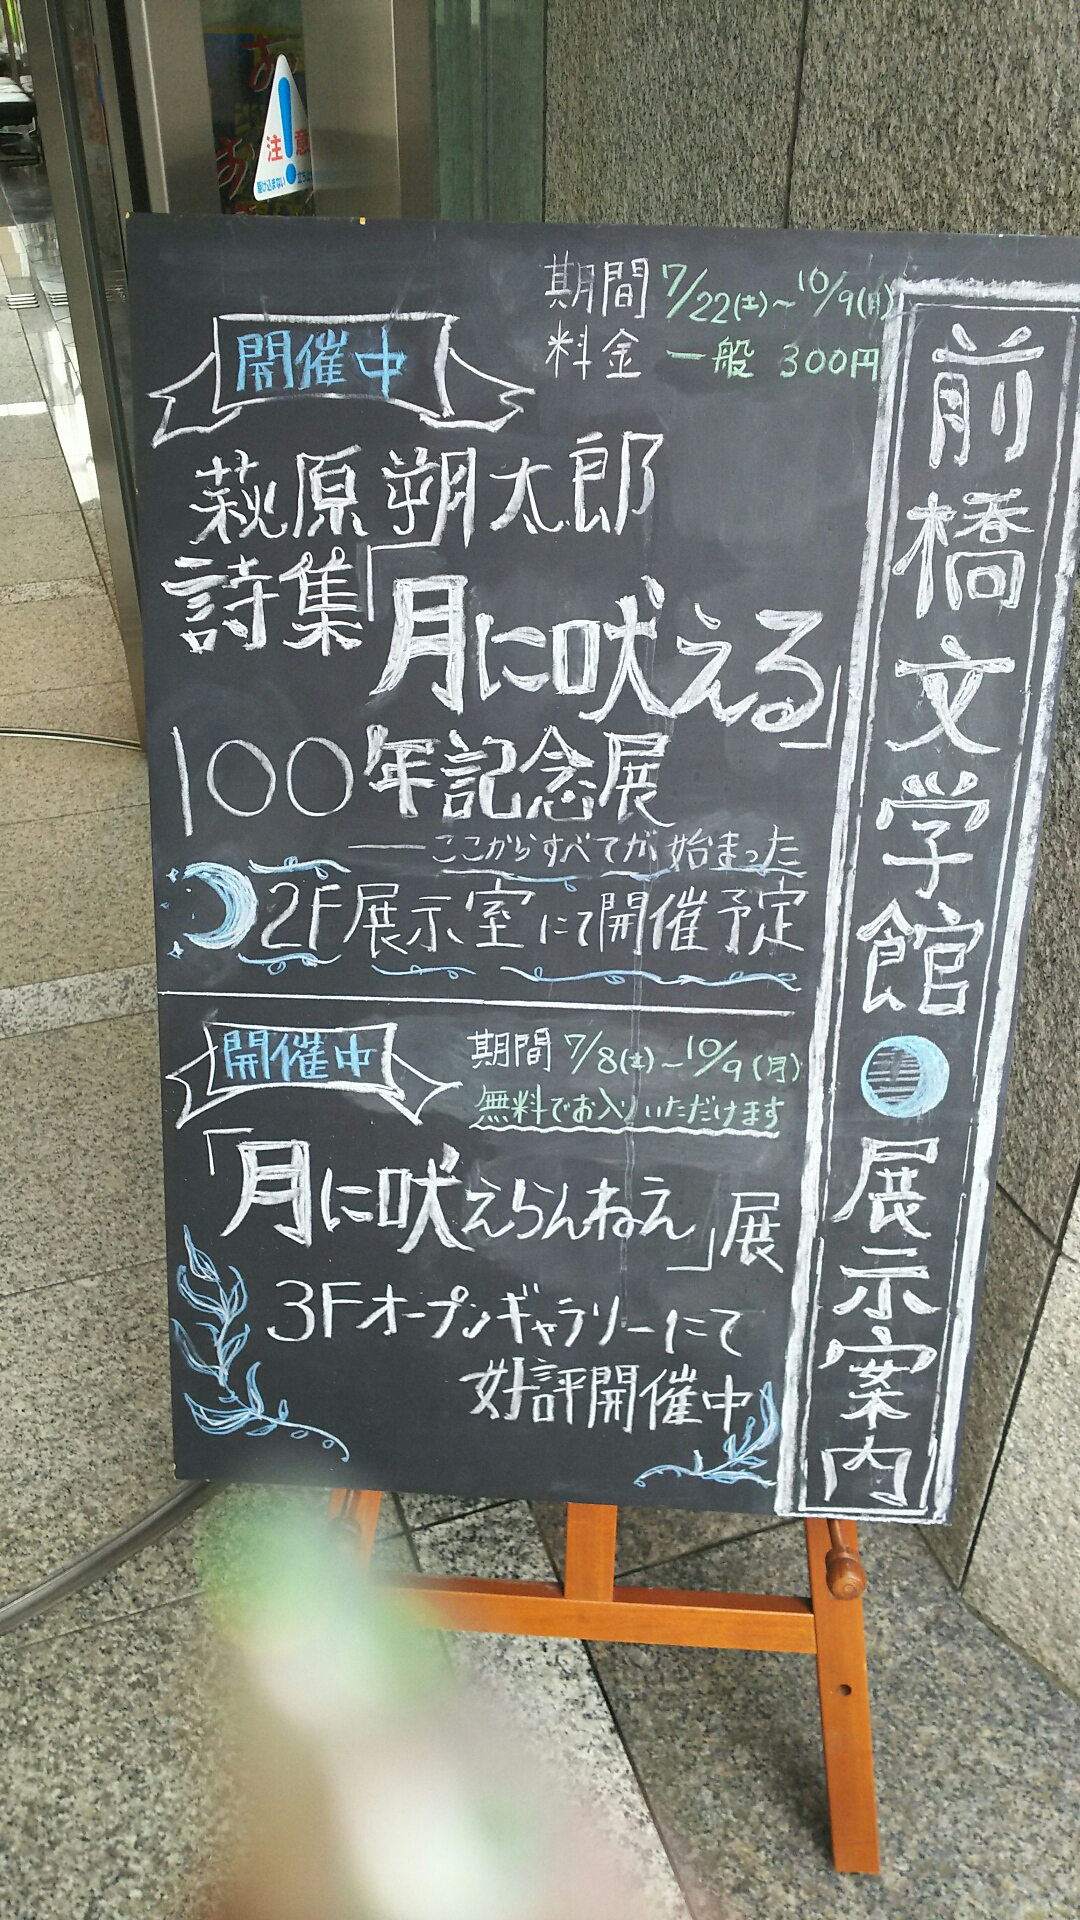 注意
駆け込まない
前橋文学館 展示案内
期間 7/22(土)~10/9(月)
料金 一般 300円
開催中
萩原朔太郎
詩集「月に吠える」
100年記念展
──ここからすべてが始まった
2F展示室にて開催予定
開催中
期間 7/8(土)~10/9(月)
無料でお入りいただけます
「月に吠えらんねえ」展
3Fオープンギャラリーにて
好評開催中